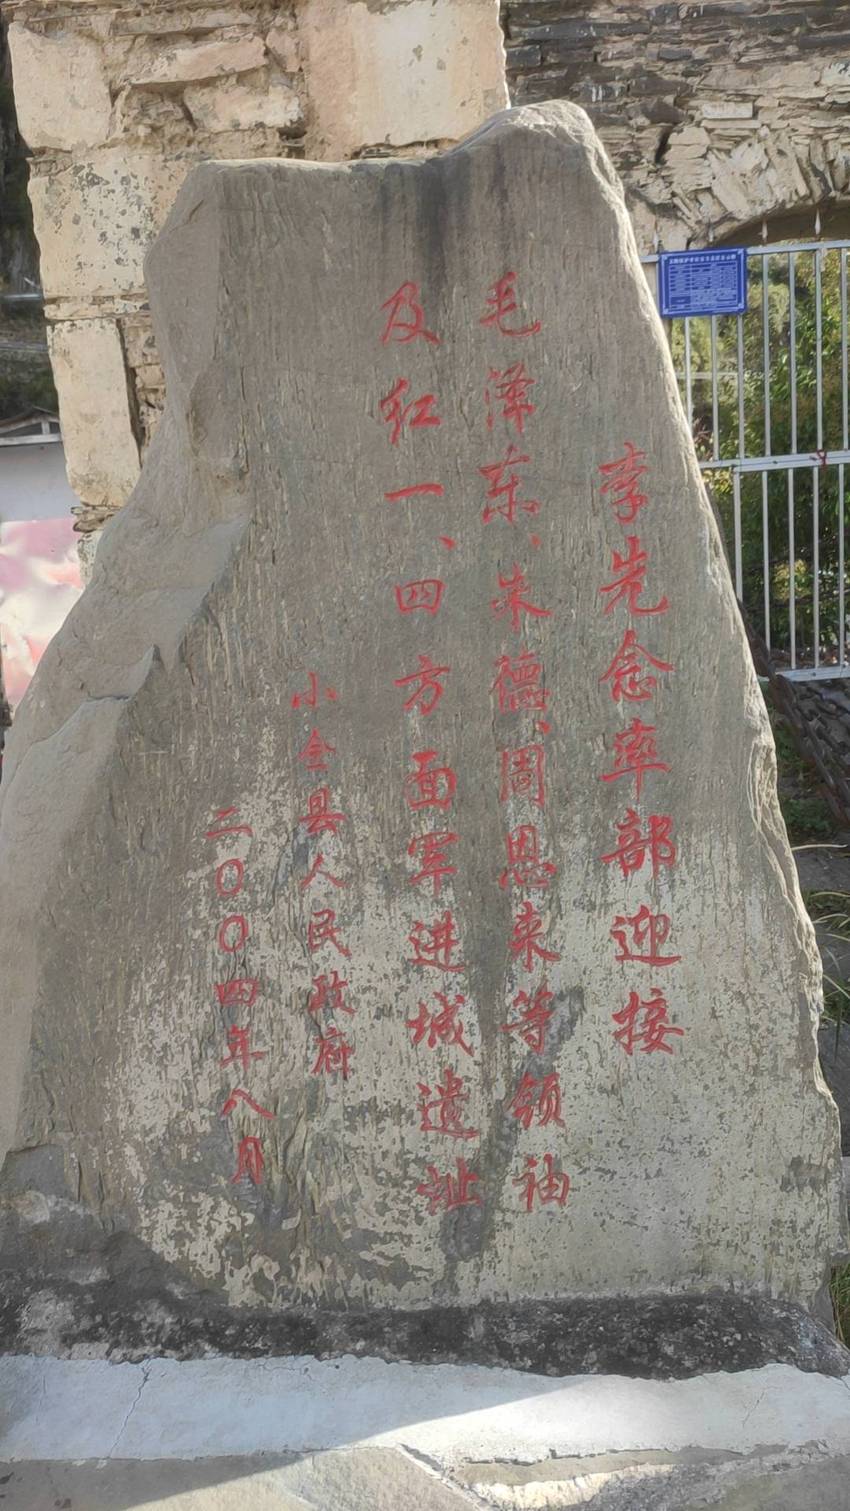 李先念率部迎接
毛泽东、朱德、周恩来等领袖
及红一、四方面军进城遗址
小金县人民政府
二〇〇四年八月